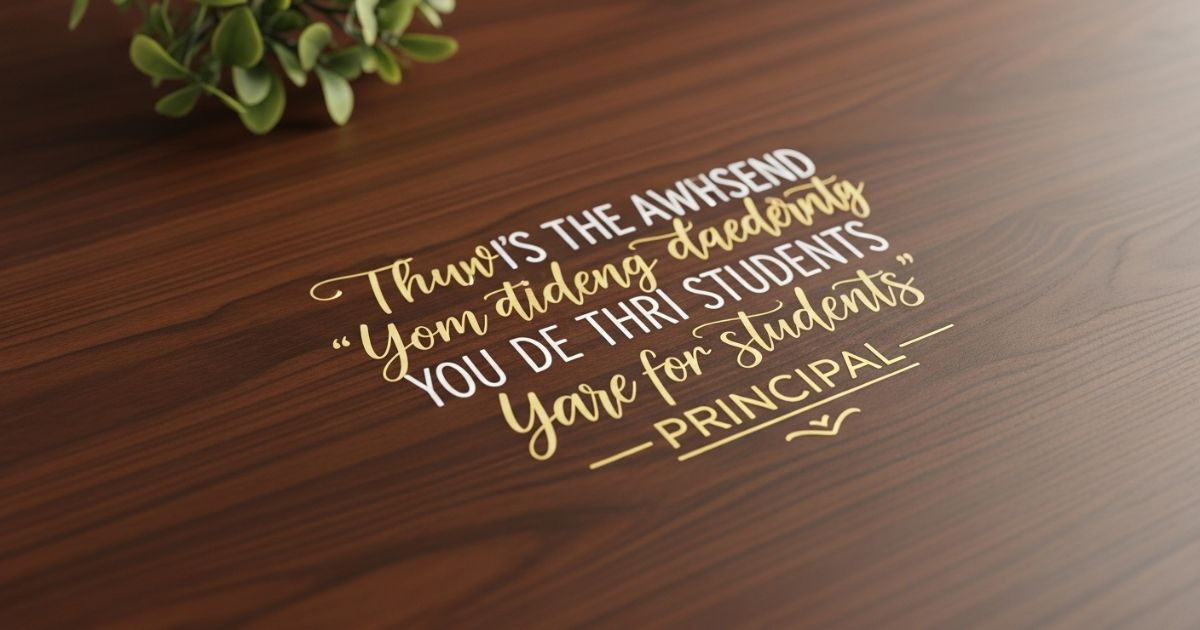 Thuw I'S THE AWHSEND
“Yom dideng daederntg
YOU DE THRI STUDENTS
Yare for students”
PRINCIPAL